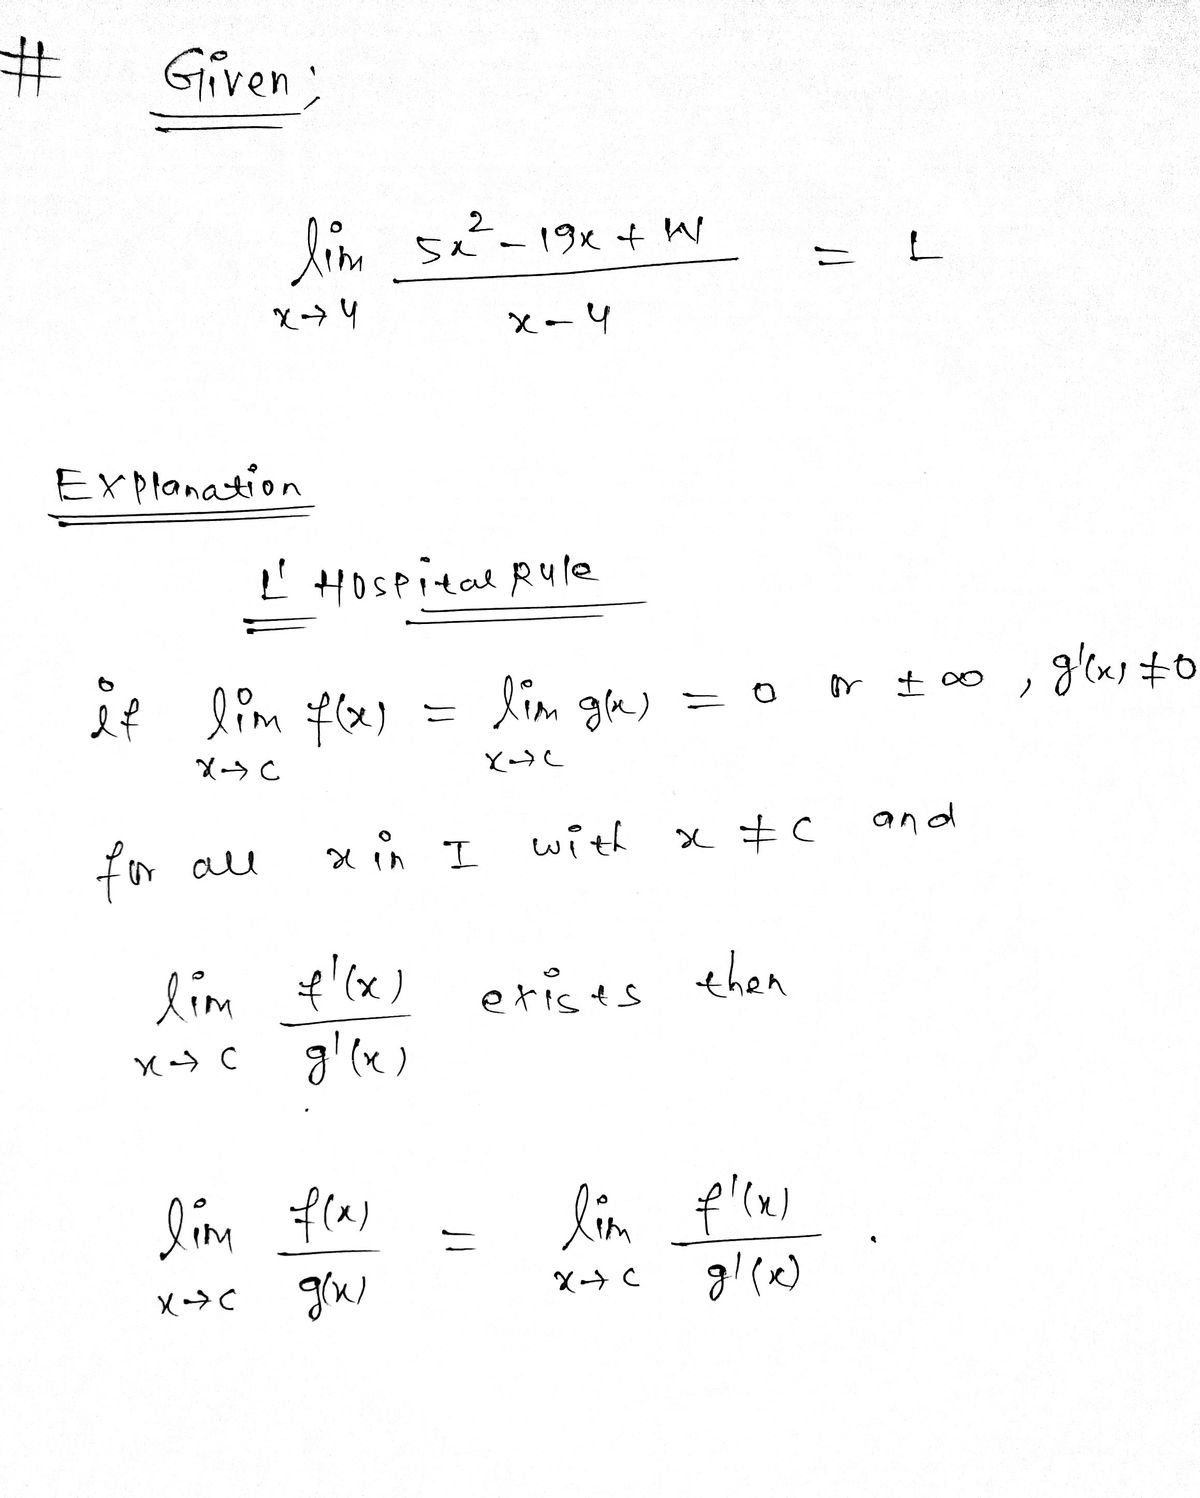 # Given;
lim x→4 (5x² - 19x + W) / (x - 4) = L
Explanation
L' Hospital Rule
if lim x→c f(x) = lim x→c g(x) = 0 or ± ∞, g'(x) ≠ 0
for all x in I with x ≠ c and
lim x→c f'(x) / g'(x) exists then
lim x→c f(x) / g(x) = lim x→c f'(x) / g'(x) .